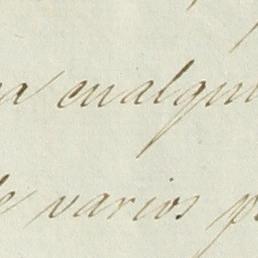 cualqui
de varios p